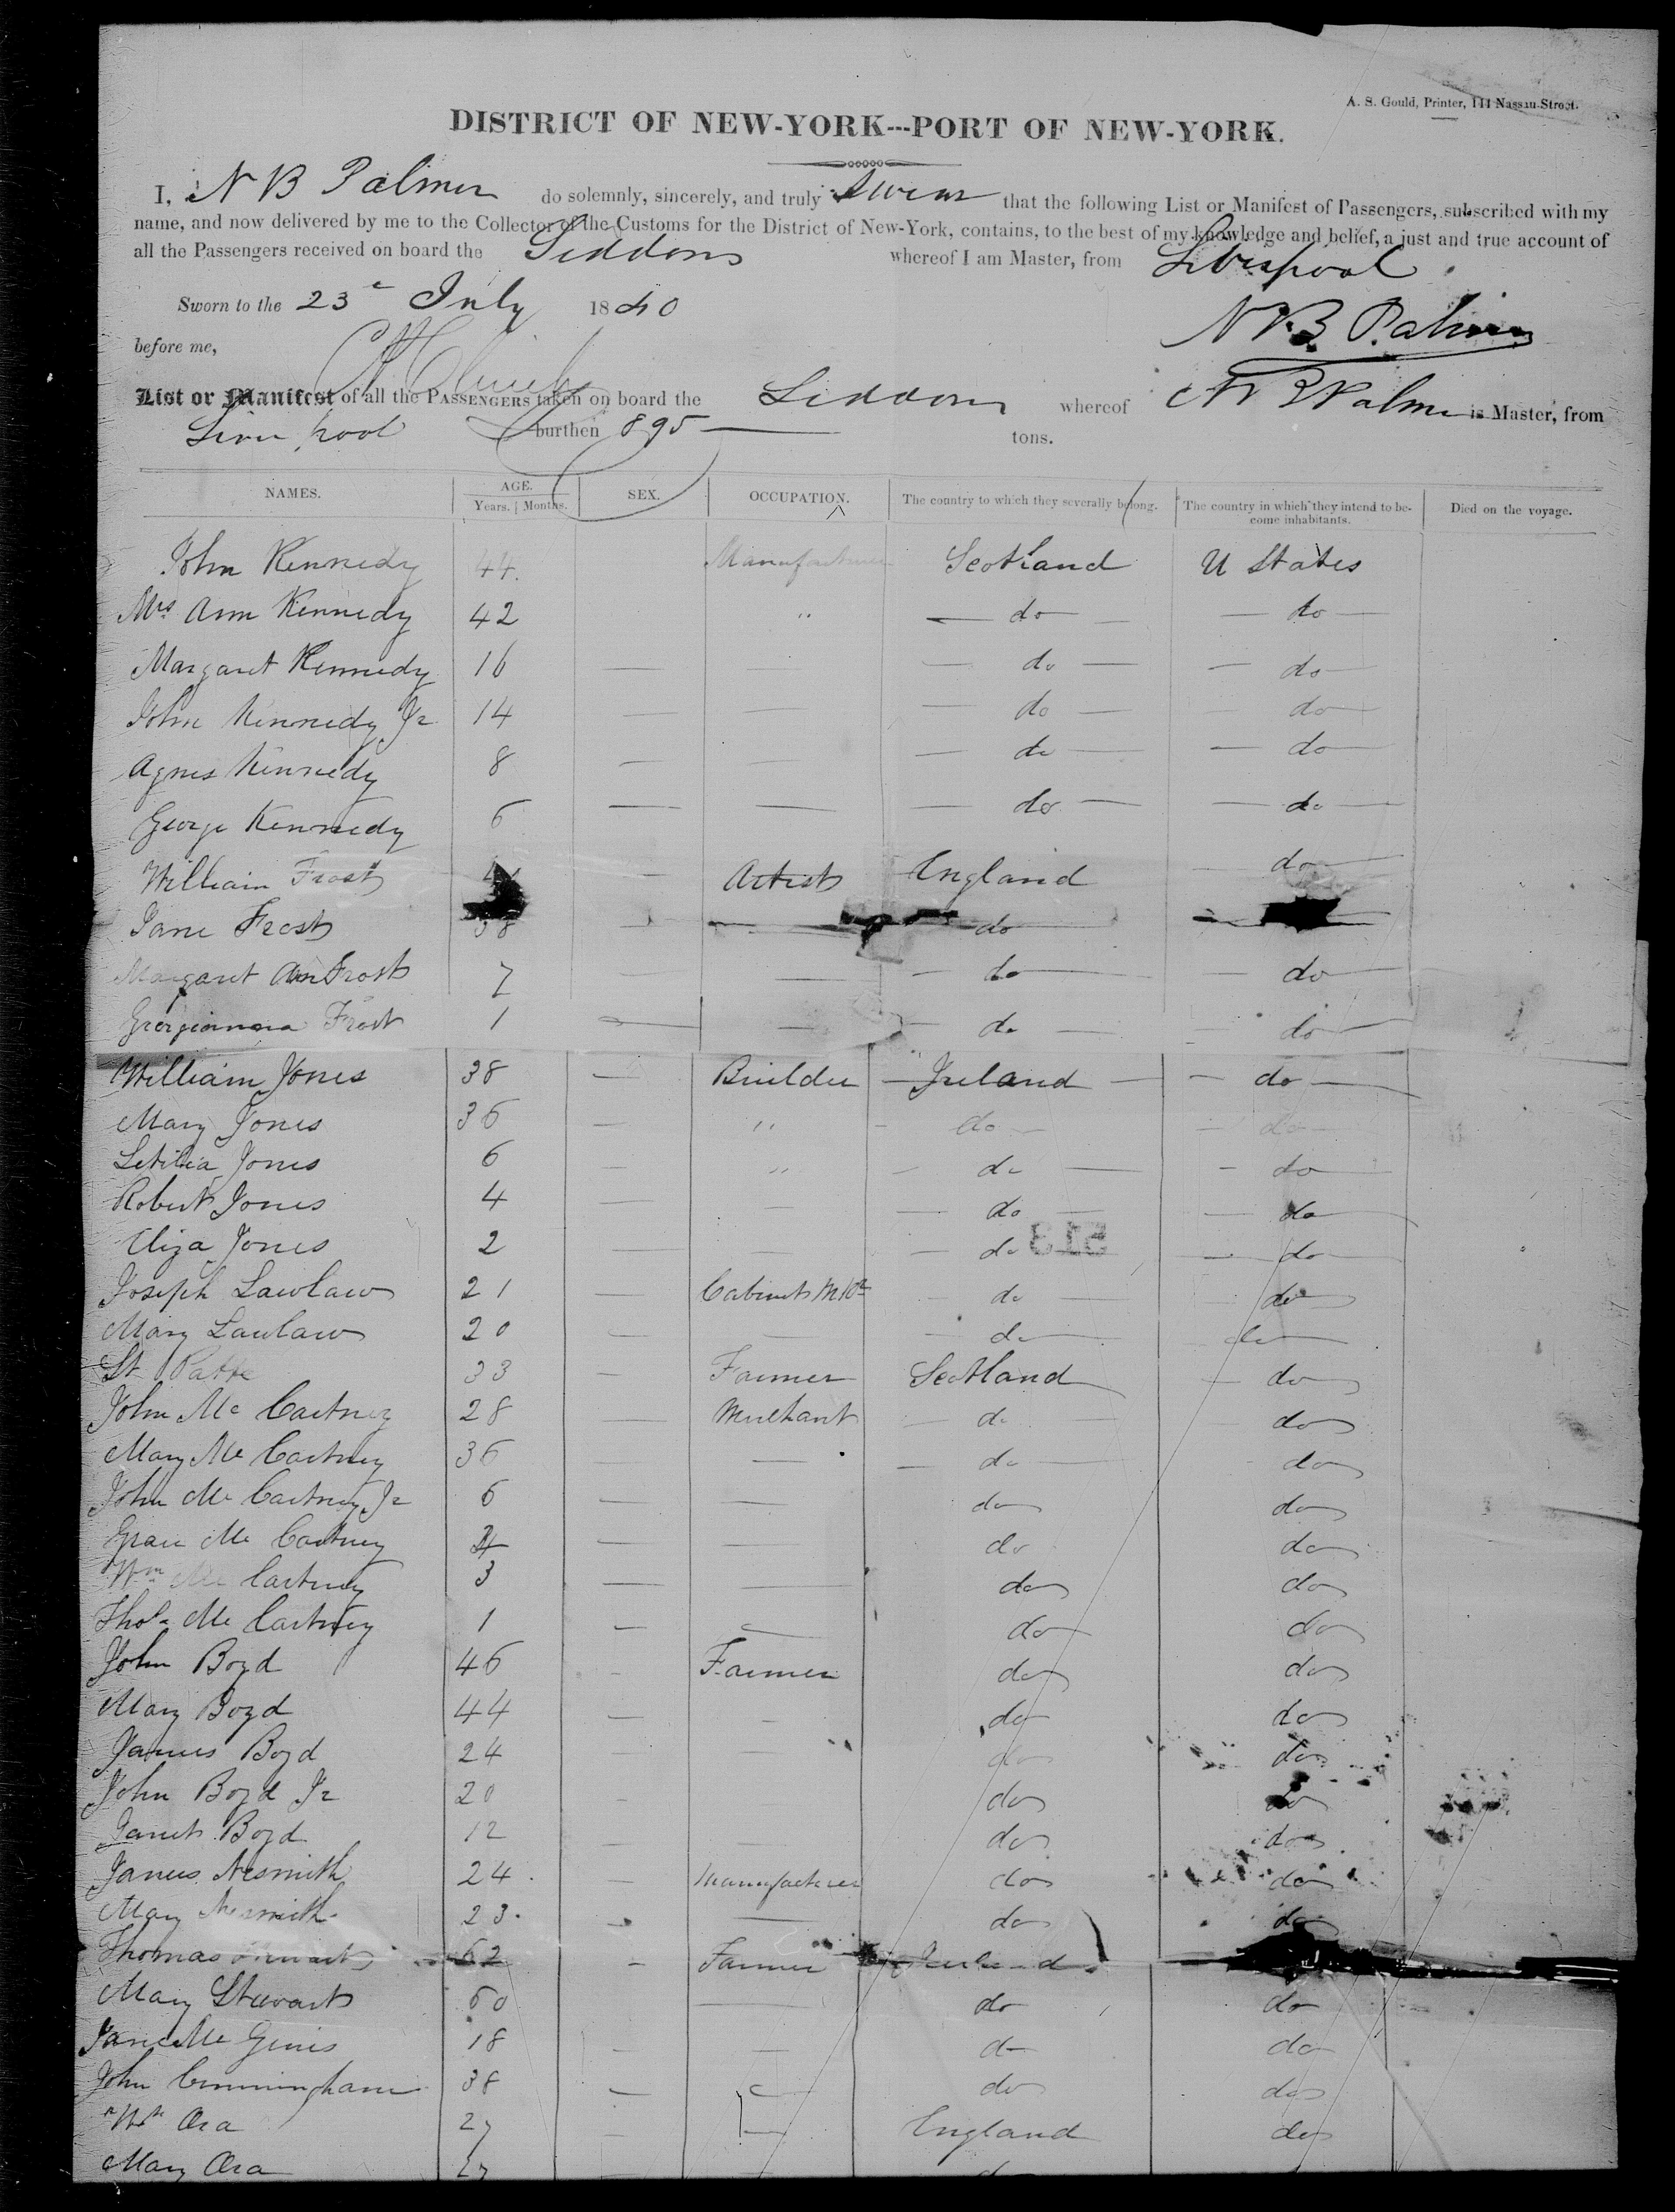 A. S. Gould, Printer, 144 Nassau-Street.
DISTRICT OF NEW-YORK---PORT OF NEW-YORK.
I, N B Palmer do solemnly, sincerely, and truly swear that the following List or Manifest of Passengers, subscribed with my
name, and now delivered by me to the Collector of the Customs for the District of New-York, contains, to the best of my knowledge and belief, a just and true account of
all the Passengers received on board the Siddons whereof I am Master, from Liverpool
Sworn to the 23 July 1840
N B Palmer
before me,
List or Manifest of all the PASSENGERS taken on board the Siddons whereof N B Palmer is Master, from
Liverpool burthen 895 tons.
NAMES. AGE. Years. Months. SEX. OCCUPATION. The country to which they severally belong. The country in which they intend to become inhabitants. Died on the voyage.
John Kennedy 44 Manufacturer Scotland U States
Mrs Ann Kennedy 42 " do do
Margaret Kennedy 16 do do
John Kennedy Jr 14 do do
Agnes Kennedy 8 do do
George Kennedy 6 do do
William Frost Artist England do
Jane Frost 38 do
Margaret Ann Frost 7 do do
Georgianna Frost 1 do do
William Jones 38 Builder Ireland do
Mary Jones 36 " do do
Letitia Jones 6 " do do
Robert Jones 4 do do
Eliza Jones 2 do do
513
Joseph Lawlaw 21 Cabinet Mkr do do
Mary Lawlaw 20 do do
33 Farmer Scotland do
John Mc Cartney 28 Merchant do do
Mary Mc Cartney 36 do do
John Mc Cartney Jr 6 do do
Grace Mc Cartney 4 do do
Wm Mc Cartney 3 do do
Thos Mc Cartney 1 do do
John Boyd 46 Farmer do do
Mary Boyd 44 do do
James Boyd 24 do do
John Boyd Jr 20 do do
Janet Boyd 12 do do
James Nesmith 24 Manufacturer do do
Mary Nesmith 23 do do
Thomas Stewart 62 Farmer Ireland
Mary Stewart 60 do do
Jane Mc Ginis 18 do do
John Cunningham 38 do do
Wm Ora 27 England do
Mary Ora 27 do